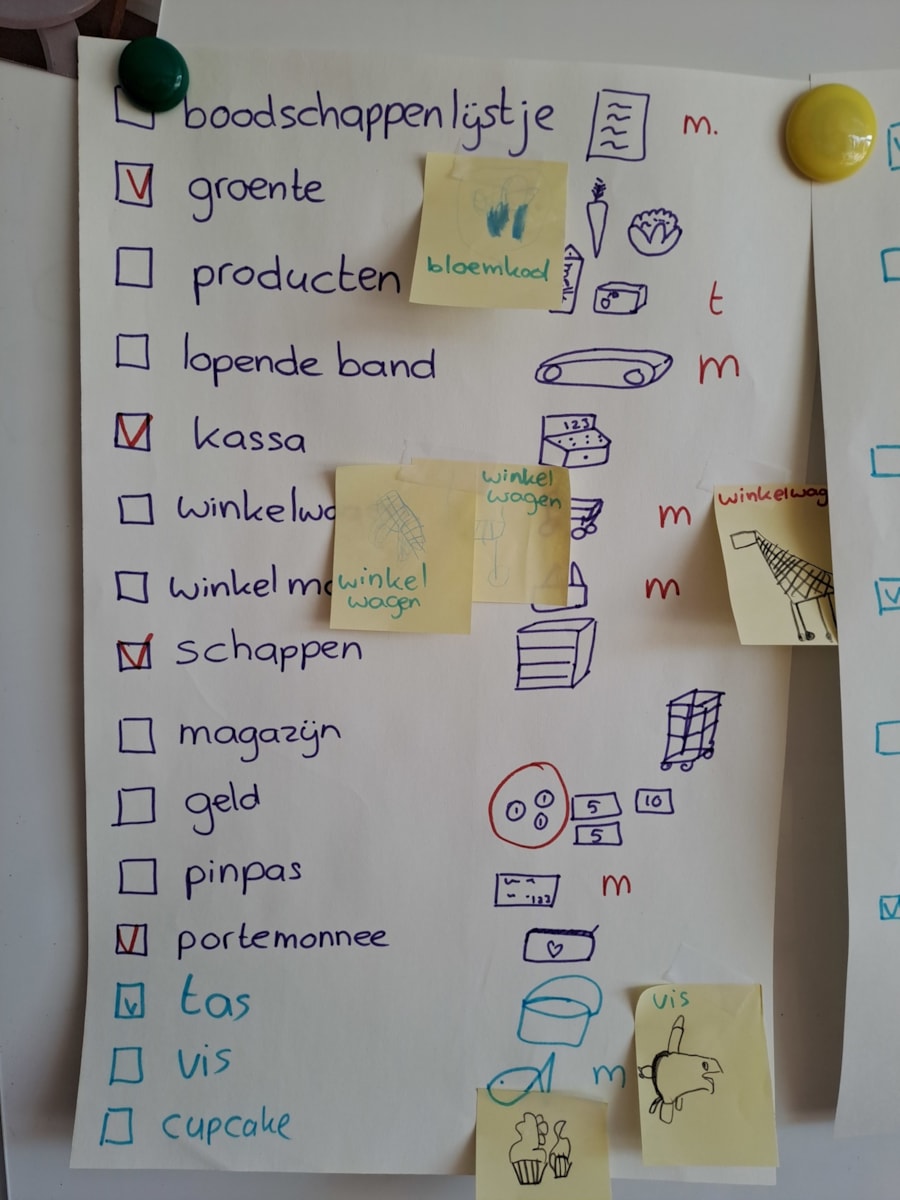 boodschappenlijstje m.
V groente
bloemkool
producten melk t
lopende band m
V kassa 123
winkelwa m
winkel wagen
winkel wagen
winkelwag
winkel ma m
V schappen
magazijn
geld 1 1 1 5 10 5
pinpas 123 m
V portemonnee
v tas
vis m
vis
cupcake